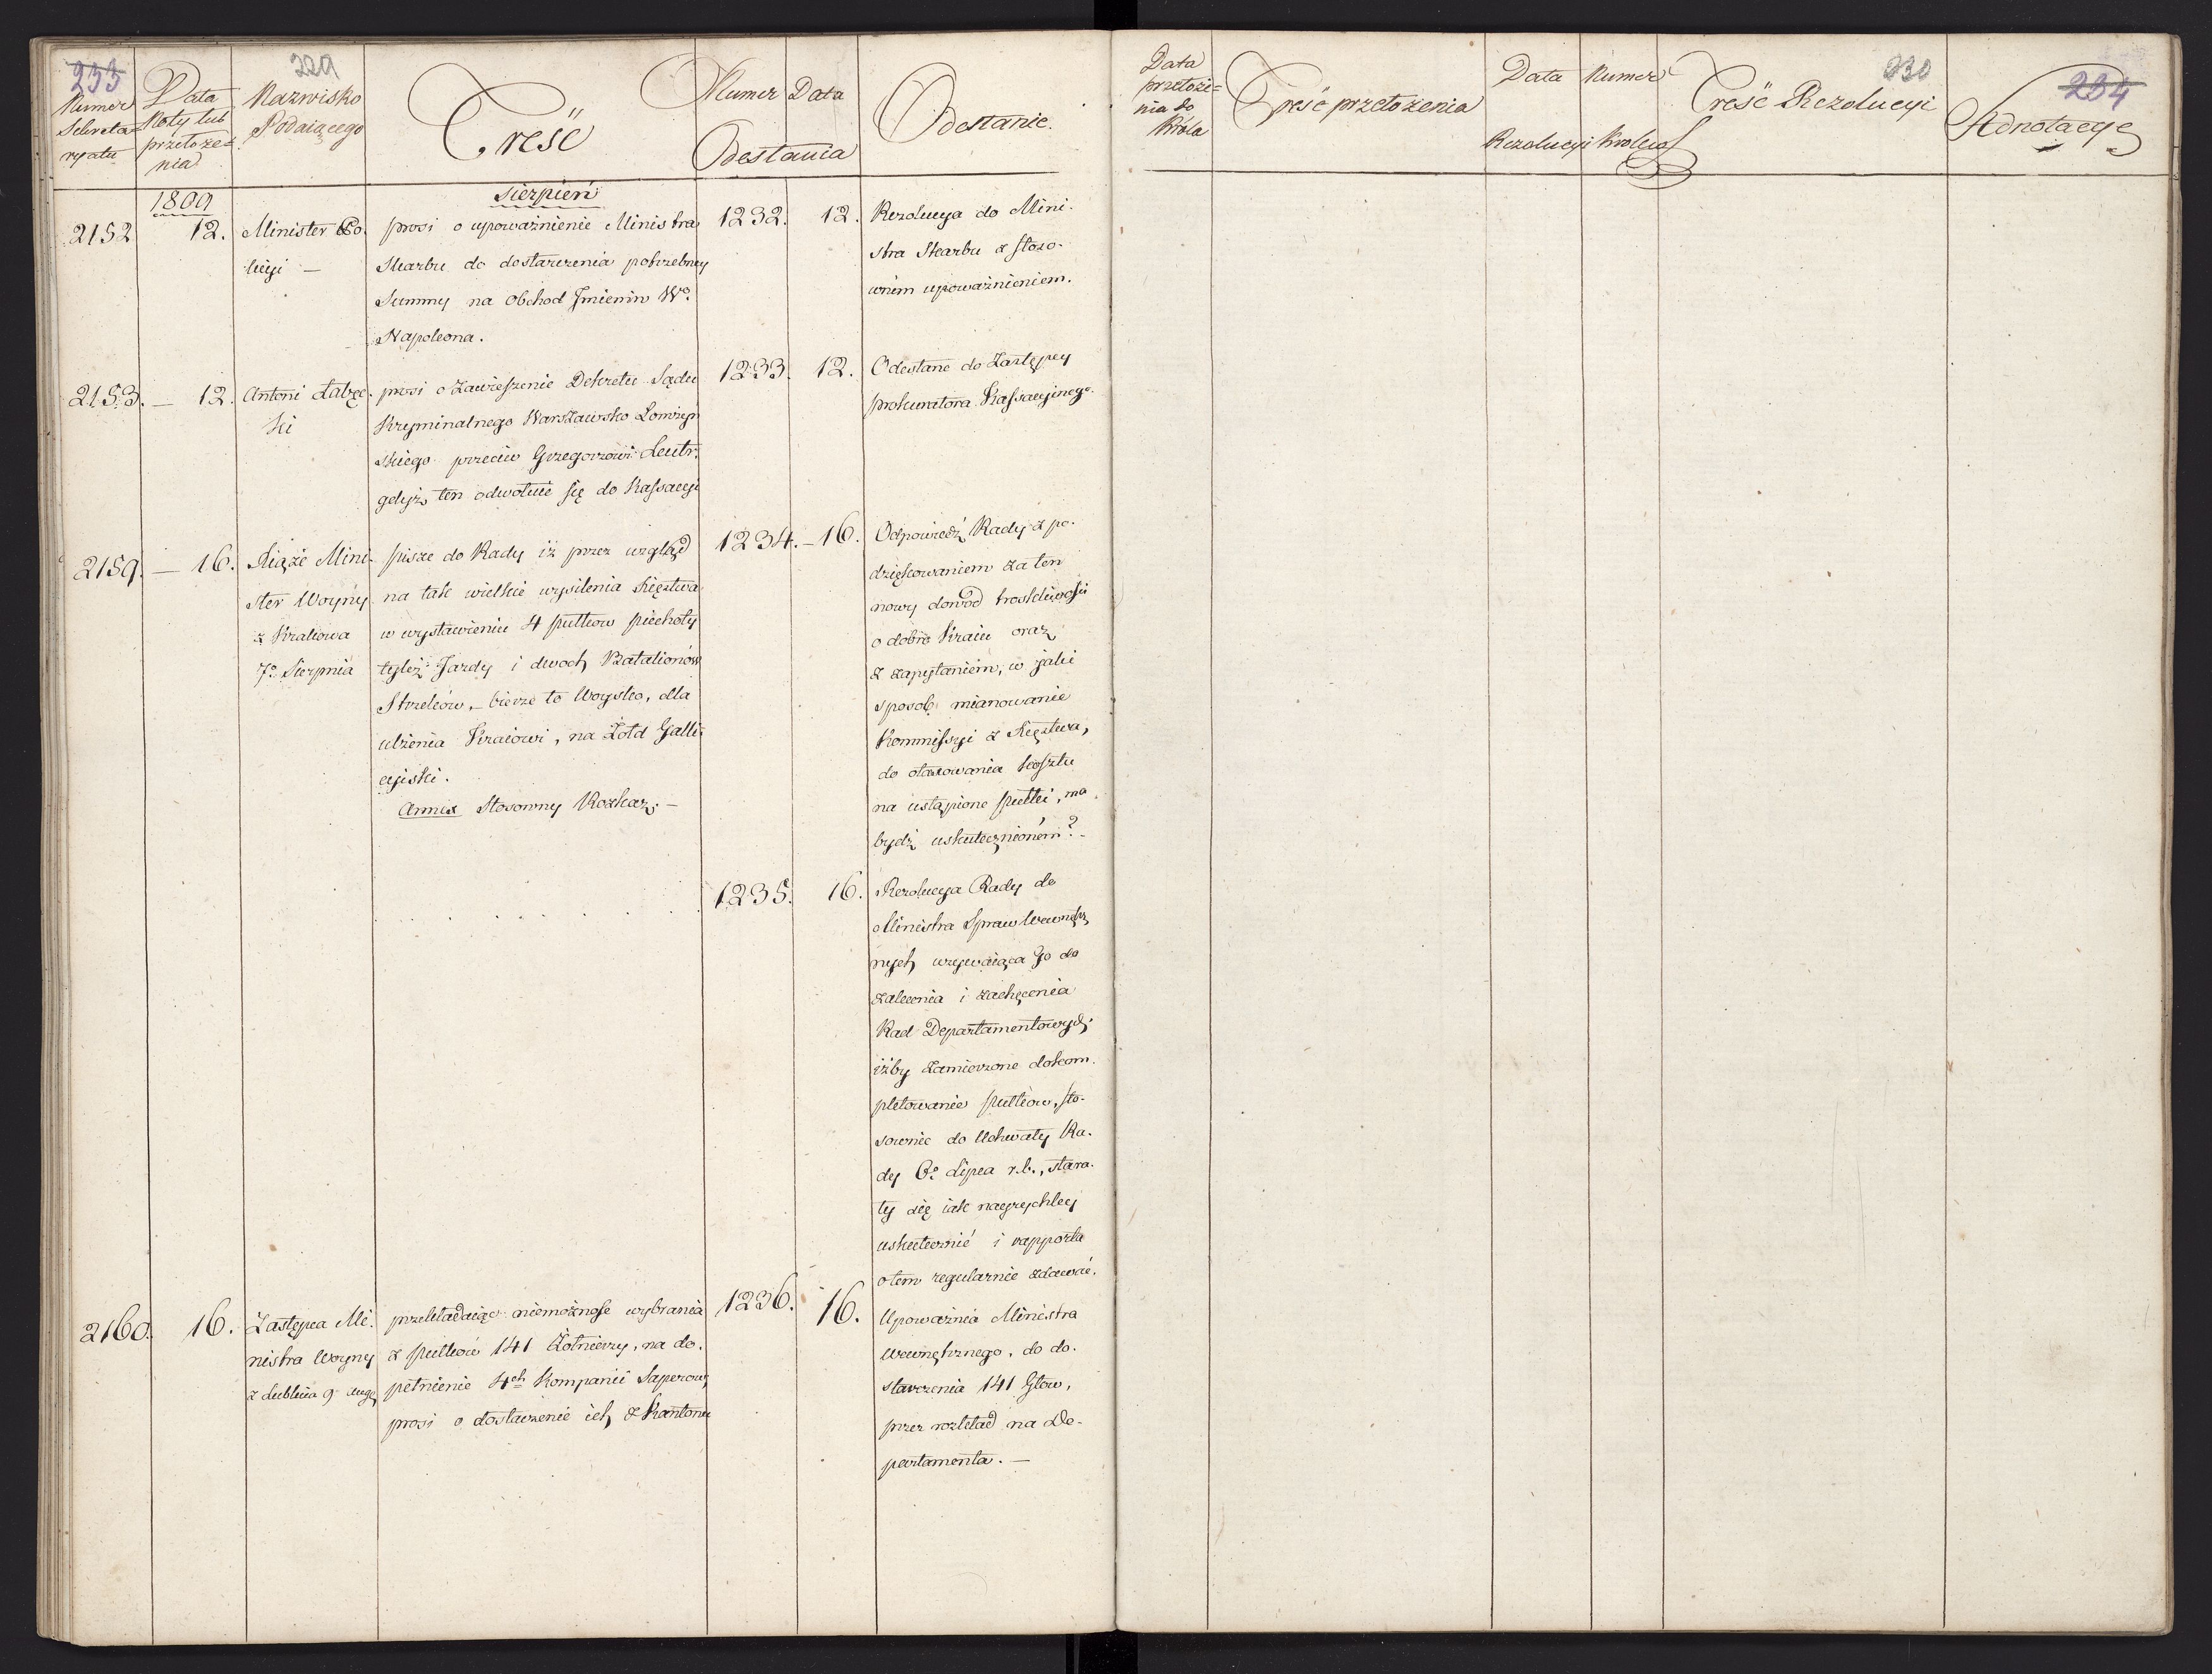 233
229
Numer
Sekreta-
ryatu
Data
Noty lub
przełoże-
nia
Nazwisko
Podaiącego
Treść
Numer Data
Odesłania
Odesłanie.
1809
sierpień
2152
12.
Minister Po-
licyi —
prosi o upoważnienie Ministra
Skarbu do dostarczenia potrzebney
Summy na Obchod Jmienin Wo.
Napoleona.
1232. 12.
Rezolucya do Mini-
stra Skarbu z stoso-
wném upoważnieniem.
2153. — 12.
Antoni
ki
prosi o zawieszenie Dekretu Sądu
Kryminalnego Warszawsko Łomżyń
skiego przeciw Grzegorzowi
gdyż ten odwołuie się do Kassacyi
1233. 12.
Odesłane do Zastępcy
prokuratora Kassacyinego.
2159. — 16.
Xiąże Mini-
ster Woyny
z Krakowa
7o. Sierpnia
pisze do Rady iż przez wzgląd
na tak wielkie wysilenia Xięstwa
w wystawieniu 4 pułkow piechoty
tyleż Jazdy i dwoch Batalionów
Strzelców, — bierze to Woysko, dla
ulżenia Kraiowi, na Żołd Galli-
cyiski.
Annex Stosowny Rozkaz. —
1234. — 16.
Odpowiedź Rady z po-
dziękowaniem za ten
nowy dowod troskliwości
o dobro Kraiu oraz
z zapytaniem, w jaki
sposob mianowanie
Kommissyi z Xięstwa,
do otaxowania kosztu
na ustąpione pułki, ma
bydź uskutecznioném? —
1235. 16.
Rezolucya Rady do
Ministra Spraw Wewnętrz
nych wzywaiąca Go do
zalecenia i zachęcenia
Rad Departamentowych,
iżby zamierzone dokom-
pletowanie pułkow, sto-
sownie do Uchwały Ra-
dy 6o. Lipca r.b., stara-
ły się iak nayrychley
uskutecznić i rapporta
o tem regularnie zdawać.
2160. 16.
Zastępca Mi-
nistra Woyny
z Lublina 9 Aug.
przekładaiąc niemożność wybrania
z pułków 141 Żołnierzy, na do-
pełnienie 4ch Kompanii Saperow,
prosi o dostawzenie ich z Kantonu
1236. 16.
Upoważnia Ministra
Wewnętrznego, do do-
starczenia 141 Głów,
przez rozkład na De-
partamenta. —
230
234
Data
przełoże-
nia do
Króla
Treść przełożenia
Data Numer
Rezolucyi Krolews
Treść Rezolucyi
Adnotacye